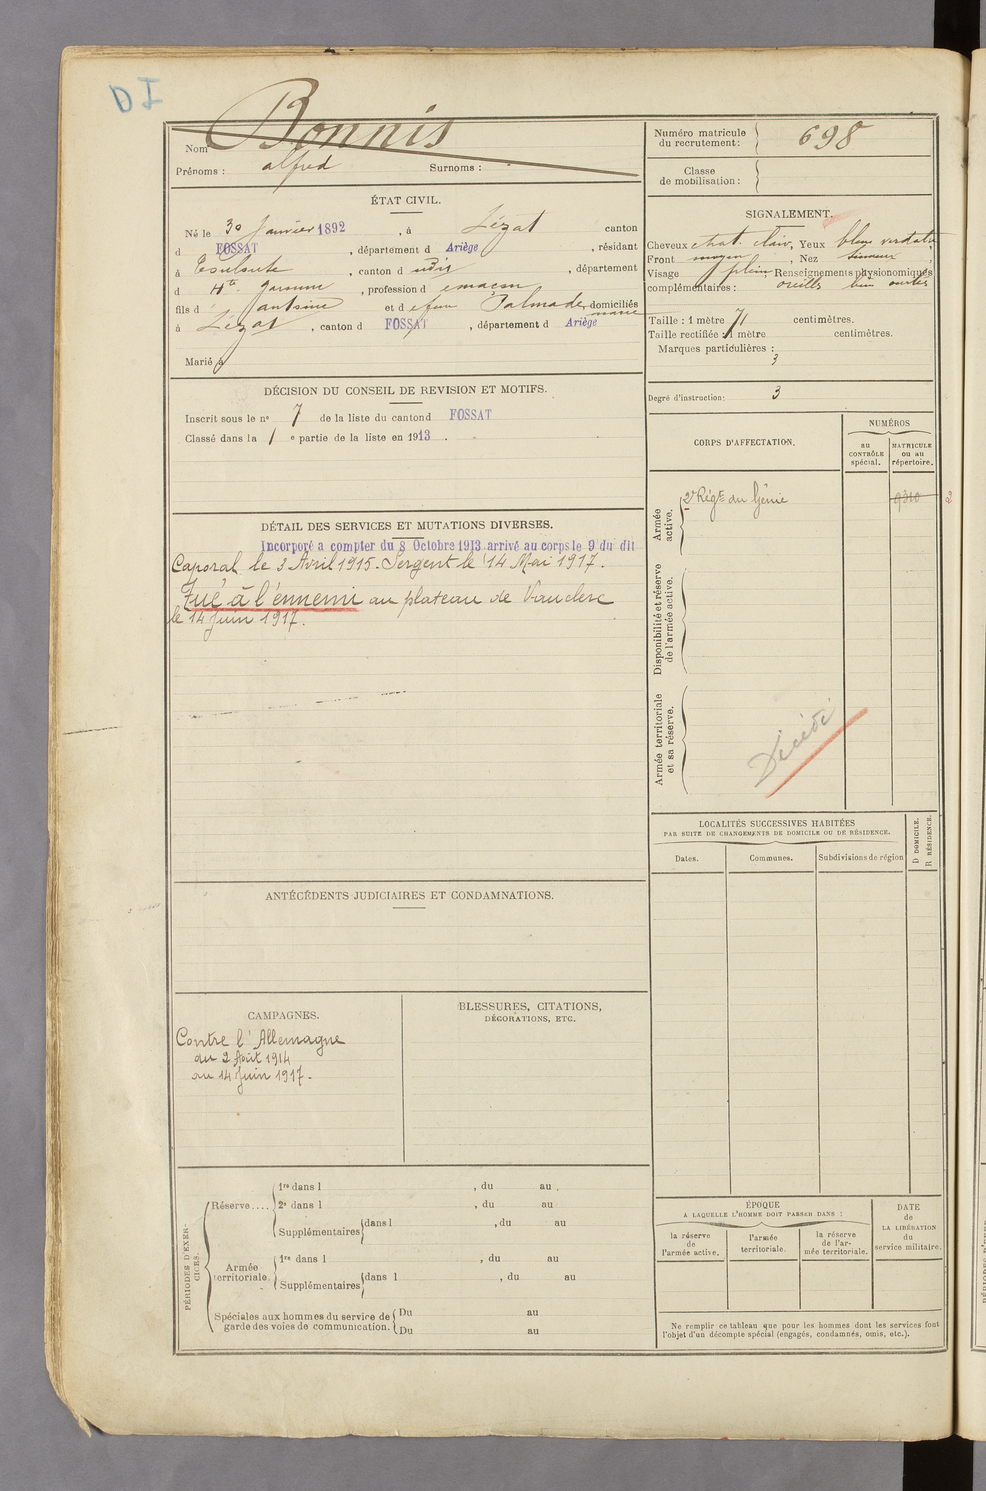 DI
Nom Bonnis
Prénoms : alfred Surnoms :
Numéro matricule du recrutement : 698
Classe de mobilisation :
ÉTAT CIVIL.
Né le 30 Janvier 1892, à Lézat canton
d FOSSAT, département d Ariège, résidant
à Toulouse, canton d udis, département
d Hte Garonne, profession d maçon
fils d Antoine et d efeu Palmade marie domiciliés
à Lézat, canton d FOSSAT, département d Ariège
Marié à
SIGNALEMENT.
Cheveux chat. clair, Yeux bleu verdatre
Front moyen, Nez sinueux
Visage plein Renseignements physionomiques
complémentaires : oreilles bien ourlées
Taille : 1 mètre 71 centimètres.
Taille rectifiée : 1 mètre centimètres.
Marques particulières :
3
Degré d'instruction : 3
DÉCISION DU CONSEIL DE REVISION ET MOTIFS.
Inscrit sous le nº 7 de la liste du canton d FOSSAT
Classé dans la 1 e partie de la liste en 1913.
CORPS D'AFFECTATION.
NUMÉROS
au CONTRÔLE spécial.
MATRICULE ou au répertoire.
Armée active.
2e Régt du Génie 9310
Disponibilité et réserve de l'armée active.
Armée territoriale et sa réserve.
Décédé
DÉTAIL DES SERVICES ET MUTATIONS DIVERSES.
Incorporé à compter du 8 Octobre 1913 arrivé au corps le 9 du dit
Caporal le 3 Avril 1915. Sergent le 14 Mai 1917.
Tué à l'ennemi au plateau de Vauclerc
le 14 Juin 1917.
LOCALITÉS SUCCESSIVES HABITÉES
PAR SUITE DE CHANGEMENTS DE DOMICILE OU DE RÉSIDENCE.
Dates. Communes. Subdivisions de région
D DOMICILE.
R RÉSIDENCE.
ANTÉCÉDENTS JUDICIAIRES ET CONDAMNATIONS.
CAMPAGNES.
Contre l'Allemagne
du 2 Août 1914
au 14 Juin 1917.
BLESSURES, CITATIONS,
DÉCORATIONS, ETC.
PÉRIODES D'EXERCICES.
Réserve....
1re dans l , du au .
2e dans l , du au
Supplémentaires dans l , du au
Armée territoriale
1re dans l , du au
Supplémentaires dans l , du au
Spéciales aux hommes du service de garde des voies de communication.
Du au
Du au
ÉPOQUE
A LAQUELLE L'HOMME DOIT PASSER DANS :
la réserve de l'armée active.
l'armée territoriale.
la réserve de l'armée territoriale.
DATE
de
LA LIBÉRATION
du
service militaire.
Ne remplir ce tableau que pour les hommes dont les services font
l'objet d'un décompte spécial (engagés, condamnés, omis, etc.).